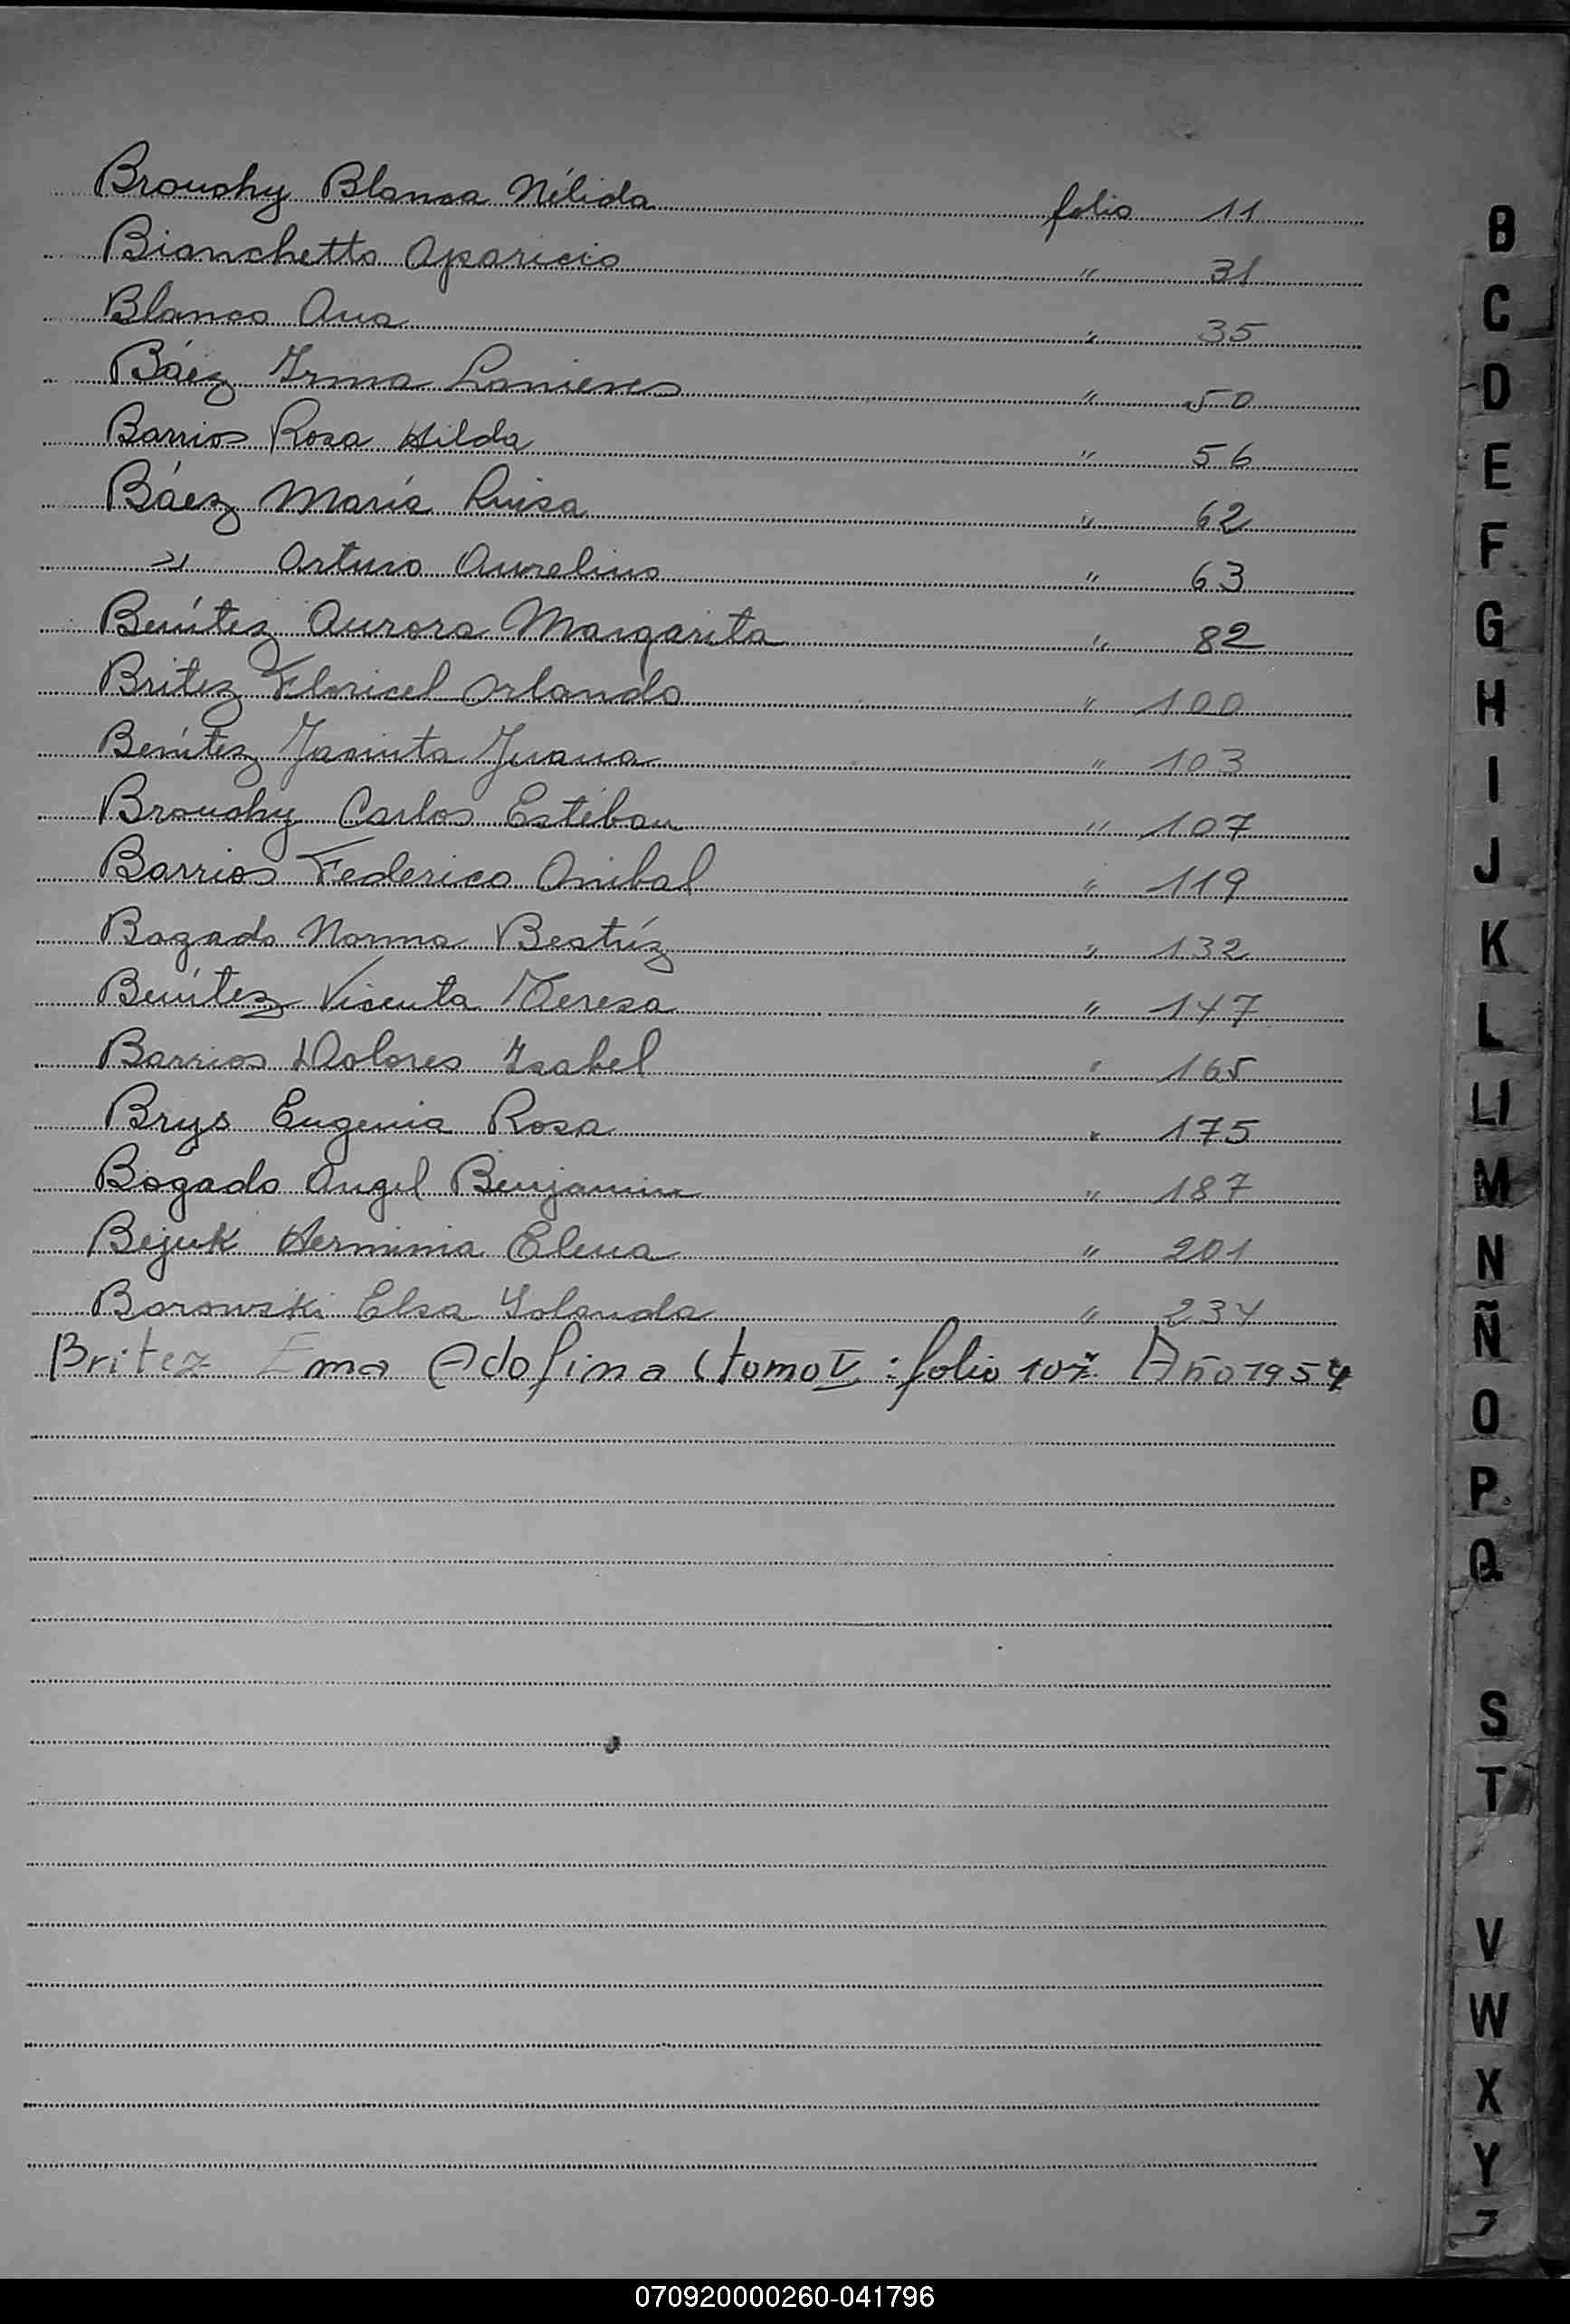 Brouchy Blanca Nélida folio 11
Bianchetto Aparicio " 31
Blanco Ana " 35
Báez Irma " 50
Barrios Rosa Hilda " 56
Báez María Luisa " 62
" Arturo Aurelino " 63
Benítez Aurora Margarita " 82
Britez Floricel Orlando " 100
Benítez Jacinta Juana " 103
Brouchy Carlos Estéban " 107
Barrios Federico Anibal " 119
Bogado Norma Beatríz " 132
Benítez Vicenta Teresa " 147
Barrios Dolores Isabel " 165
Brys Eugenia Rosa " 175
Bogado Angel Benjamin " 187
Bejuk Herminia Elena " 201
Borowski Elsa Yolanda " 234
Britez Ema Adofina (tomo V : folio 107 Año 1954
B
C
D
E
F
G
H
I
J
K
L
Ll
M
N
Ñ
O
P
Q
S
T
V
W
X
Y
Z
070920000260-041796